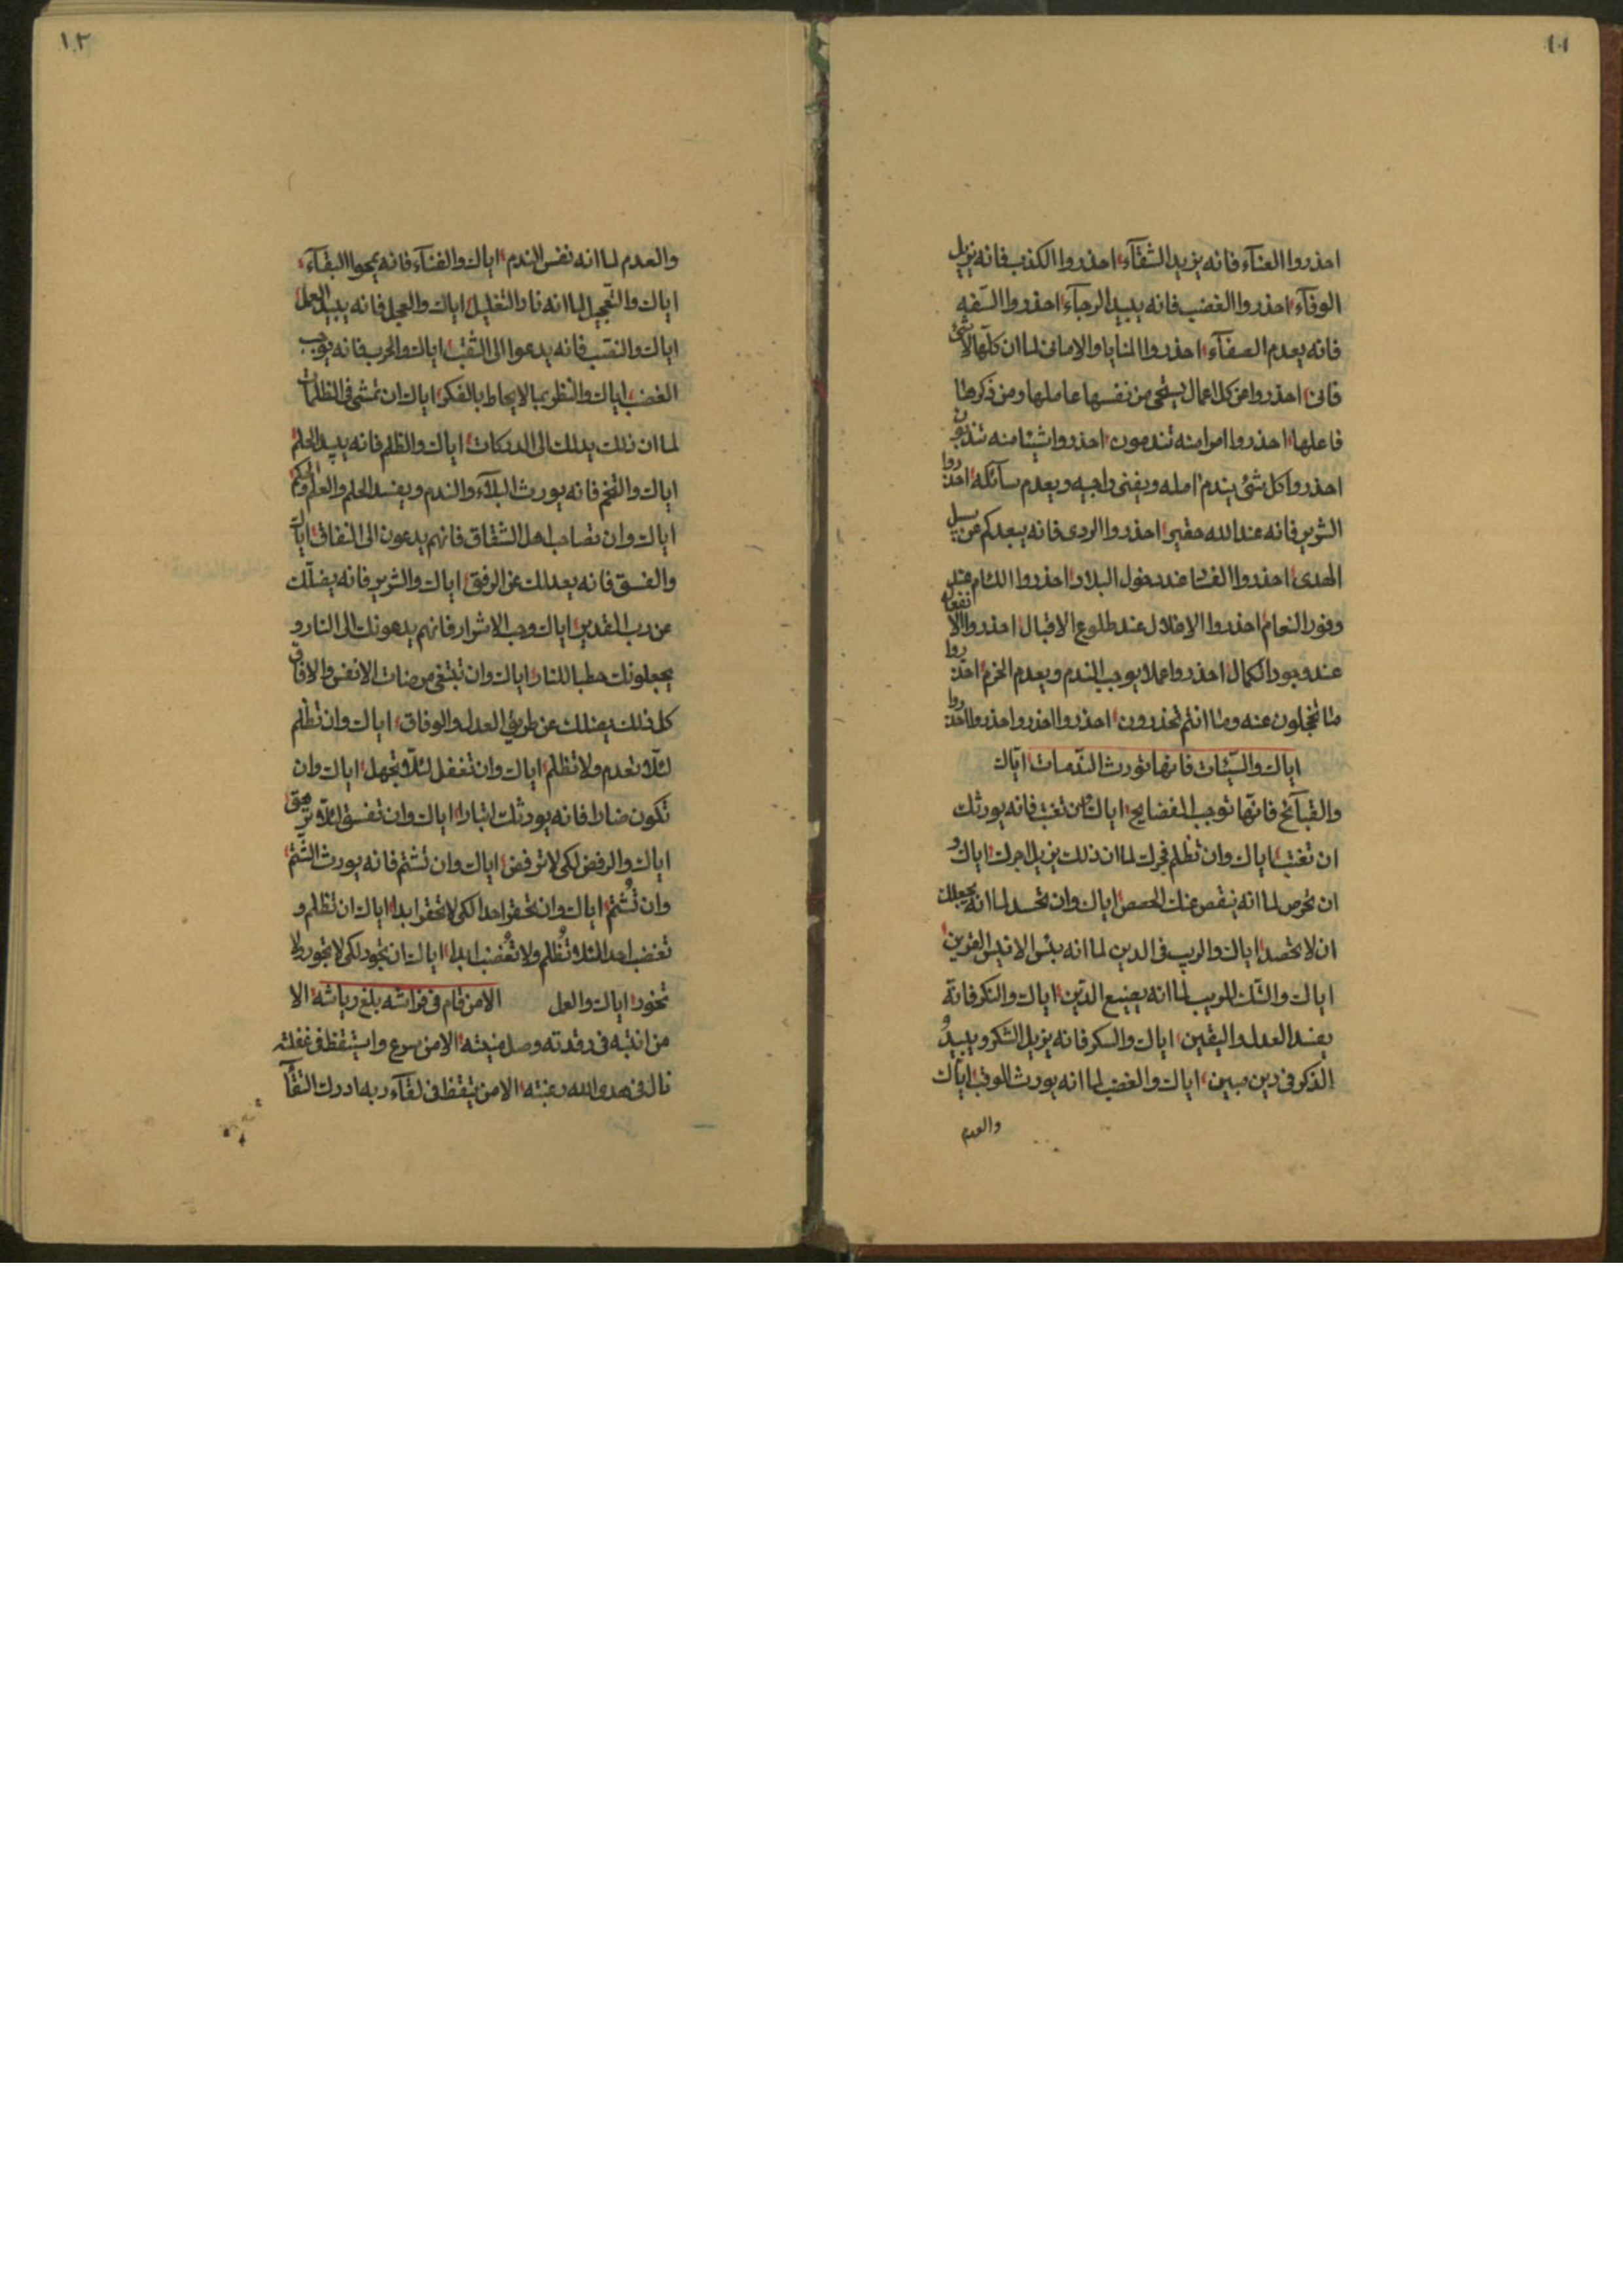 ١٠١
احذروا العنآء فانه يزيد الشقآء احذروا الكذب فانه يزيل
الوفآء احذروا الغضب فانه يبيد الرجآء احذروا السّفه
فانه يعدم الصفآء احذروا المنايا والامانى لما ان كلّها لاشئ
فانى احذروا من كل اعمال يستحى من نفسها عاملها ومن ذكرها
فاعلها احذروا امرا منه تندمون احذروا شيئا منه تتوبون
احذروا كل شئ يندم امله ويفنى راجيه ويعدم سآئله احذروا
الشرير فانه عند الله حقير احذروا الردى فانه يبعدكم عن سبيل
الهدى احذروا الفشا عند دخول البلاد احذروا اللئام عند
وفور النعام احذروا الاختلال عند طلوع الاقبال احذروا الانفعال
عند وجود الكمال احذروا عملا يوجب الندم ويعدم الحزم احذروا
مما تخجلون عنه ومما انتم تحذرون احذروا احذروا احذروا احذروا
اياك والسيّئات فانها تورث النّدمات ايّاك
والقبآئح فانّها توجب الفضايح اياك ان تغتب فانه يورثك
ان تغتب اياك وان تظلم فجرك لما ان ذلك يزيل اجرك اياك و
ان تحرص لما انه ينقص عنك الحصص اياك وان تحسد لما انه يجعلك
ان لا تحصد اياك والريب فى الدين لما انه بئس الانيس القرين
اياك والشك المريب لما انه يضيع الدّين اياك والنكر فانه
يفسد العدل واليقين اياك والسكر فانه يزيل الشكر ويبيدُ
الذكر فى دين مبين اياك والغضب لما انه يورث الوقب ايّاك
والعدم
١٠٢
والعدم لما انه نفس الندم اياك والفنآء فانه يمحوا البقآء
اياك والتّعجيل لما انه نار التغليل اياك والعجل فانه يبيد العمل
اياك والنقب فانه يدعوا الى الثقب اياك والحرب فانه يوجب
الغضب اياك والنظر بما لا يحاط بالفكر اياك ان تمشى فى الظلمات
لما ان ذلك يدلك الى الدركات اياك والظلم فانه يبيد الحلم
اياك والتخم فانه يورث البلآء والندم ويفسد الحلم والعلم والحكم
اياك وان تصاحب اهل الشقاق فانهم يدعون الى النفاق اياك
والفسق فانه يعدلك عن الرفق اياك والشرير فانه يضلّك
عن رب القدير اياك وحب الاشرار فانهم يدعونك الى النار و
يجعلونك حطبا للنار اياك وان تبتغى مرضات الانفس والافاق
كل ذلك يضلك عن طريق العدل والوفاق اياك وان تظلم
لئلا تعدم ولا تظلم اياك وان تغفل لئلا تجهل اياك وان
تكون ضارا فانه يورثك اتبارا اياك وان تفسق لئلا ترهق
اياك والرفض لكى لا ترفض اياك وان تشتم فانه يورث الشّتم
وان تُشتم اياك وان تحقر احدا لكى لا تحقر ابدا اياك ان تظلم و
تغضب احدا لئلا تُظلم ولا تُغضب ابدا اياك ان تجور لكى لا تجور ولا
تخور اياك والعل الا من قام فى فراشه بلغ رياشه الا
من انتبه فى رقدته وصل منيته الا من سرع واستيقظ فى غفلته
نال فى هدى الله رغبته الا من تيقظ فى لقآء ربه ادرك التقآ